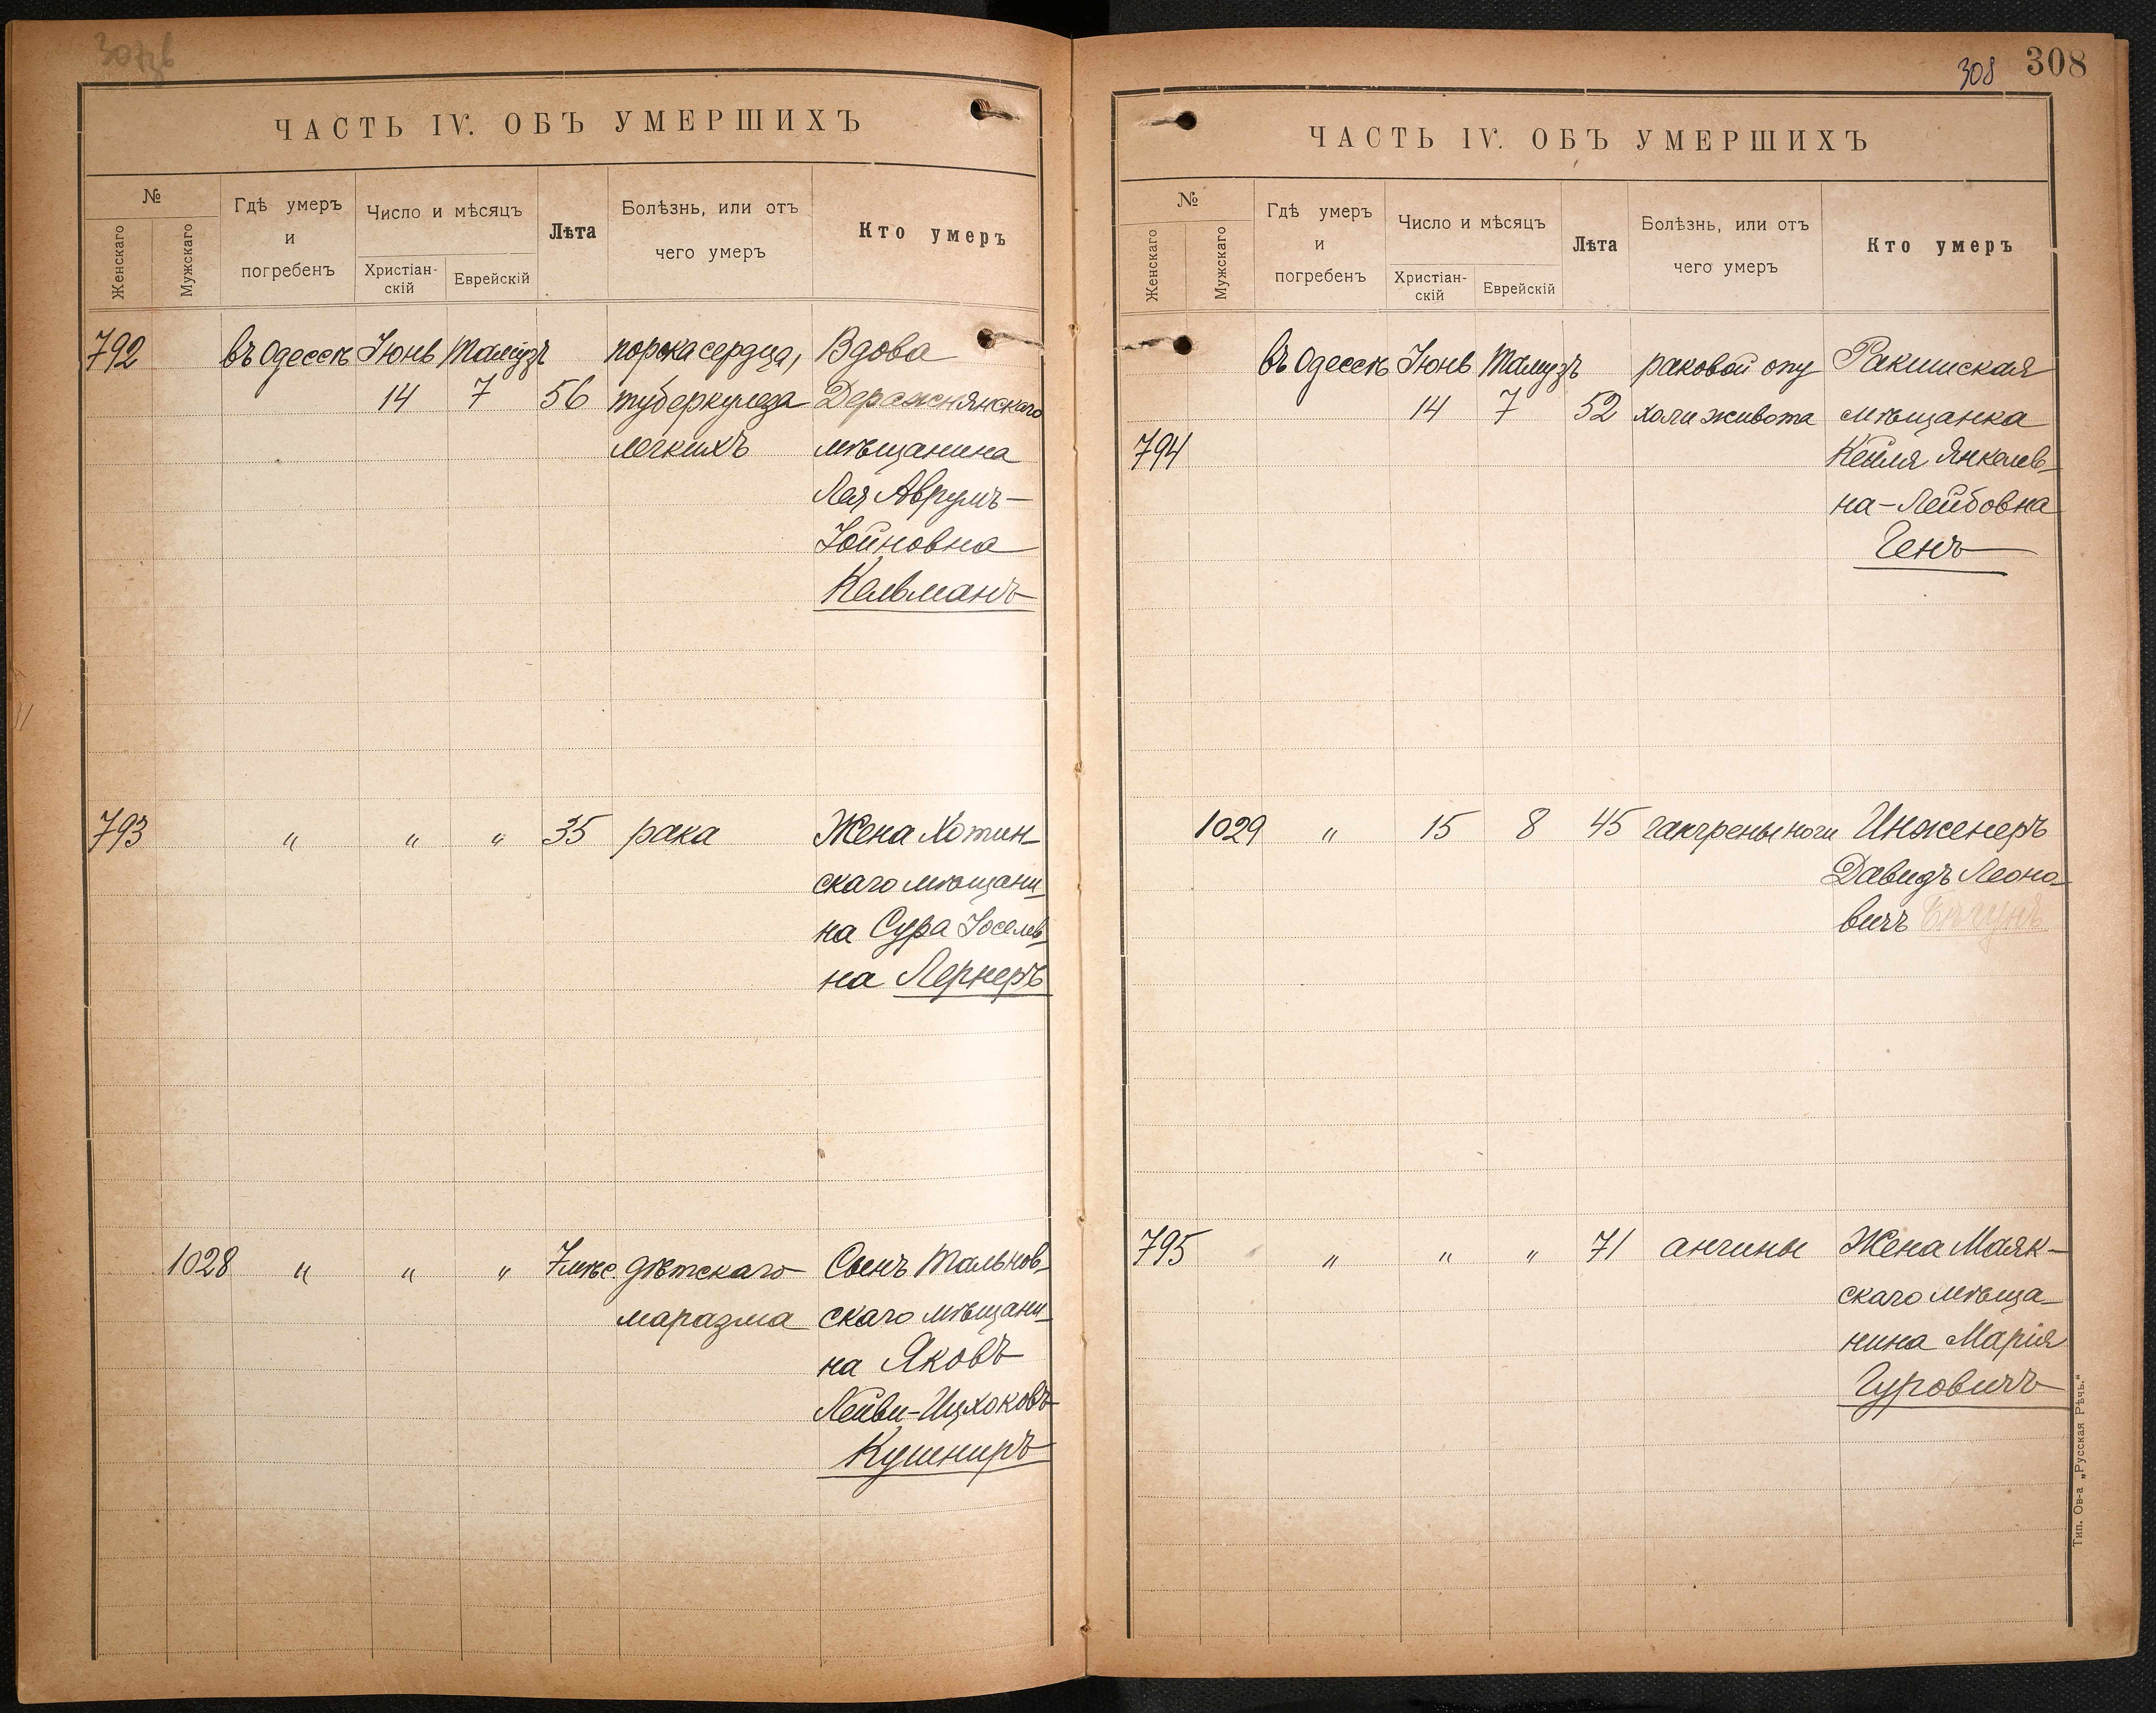 ЧАСТЬ IV. ОБЪ УМЕРШИХЪ
№
Женскаго
Мужскаго
Гдѣ умеръ
и
погребенъ
Число и мѣсяцъ
Христіан-
скій
Еврейскій
Лѣта
Болѣзнь, или отъ
чего умеръ
Кто умеръ
792 въ Одессѣ Іюнь Тамузъ порока сердца, Вдова
14 7 56 туберкулеза Деражнянскаго
легкихъ мѣщанина
Лея Аврумъ-
Іойновна
Кельманъ
793 " " " 35 рака Жена Хотин-
скаго мѣщани-
на Сура Іоселев-
на Лернеръ
1028 " " " 7 мѣс. дѣтскаго Сынъ Тальнов-
маразма скаго мѣщани-
на Яковъ
Лейви-Ицхоковъ
Кушниръ
308 308
ЧАСТЬ IV. ОБЪ УМЕРШИХЪ
№
Женскаго
Мужскаго
Гдѣ умеръ
и
погребенъ
Число и мѣсяцъ
Христіан-
скій
Еврейскій
Лѣта
Болѣзнь, или отъ
чего умеръ
Кто умеръ
въ Одессѣ Іюнь Тамузъ раковой опу Ракишская
14 7 52 холи живота мѣщанка
794 Кейля Янкелев-
на-Лейбовна
Генъ
1029 " 15 8 45 гангрены ноги Инженеръ
Давидъ Леоно-
вичъ
795 " " " 71 ангины Жена Маяк-
скаго мѣща-
нина Марія
Гуровичъ
Тип. Ов-а „Русская Рѣчь.“